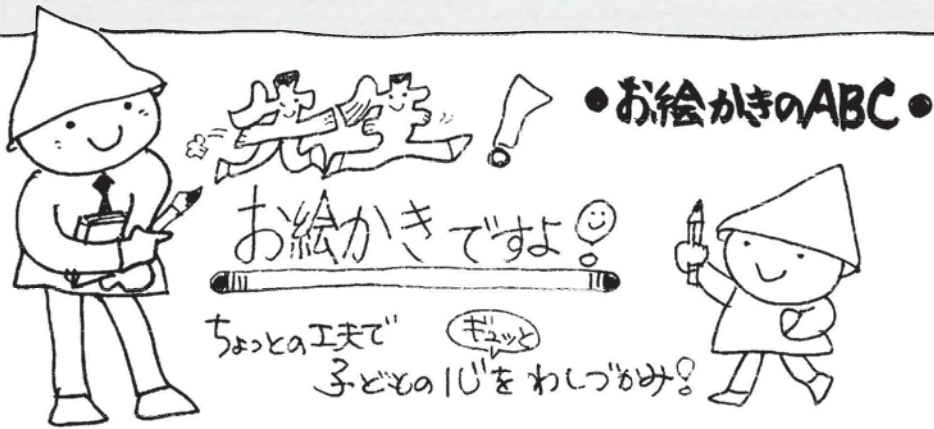 先生!
●お絵かきのABC●
お絵かきですよ!
ちょっとの工夫で
ギュッと
子どもの心をわしづかみ!